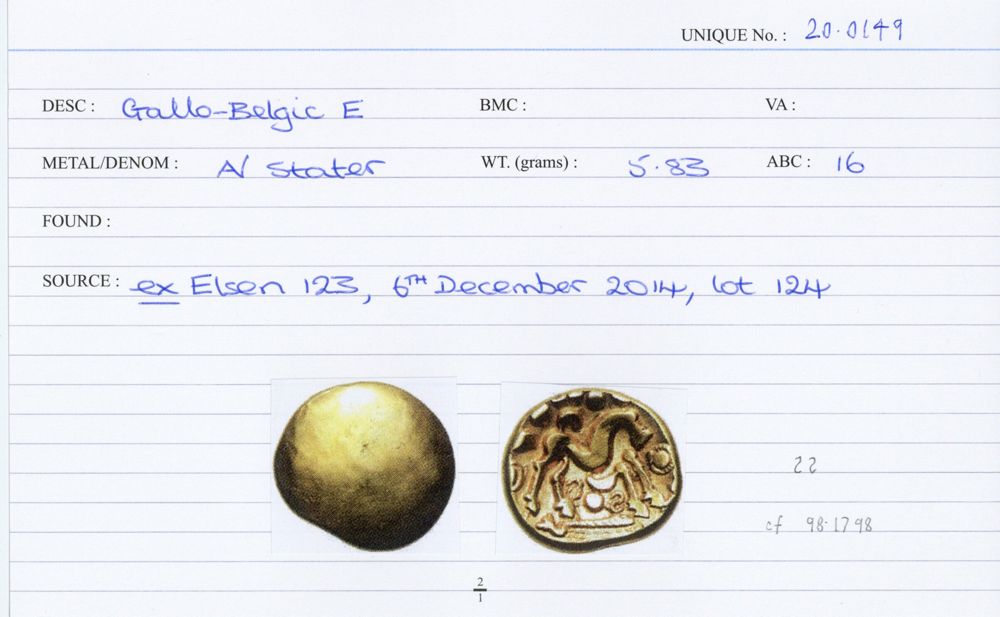 UNIQUE No. : 20.0149
DESC : Gallo-Belgic E BMC : VA :
METAL/DENOM : A/ Stater WT. (grams) : 5.83 ABC : 16
FOUND :
SOURCE : ex Elsen 123, 6TH December 2014, lot 124
22
cf 98.1798
2
1